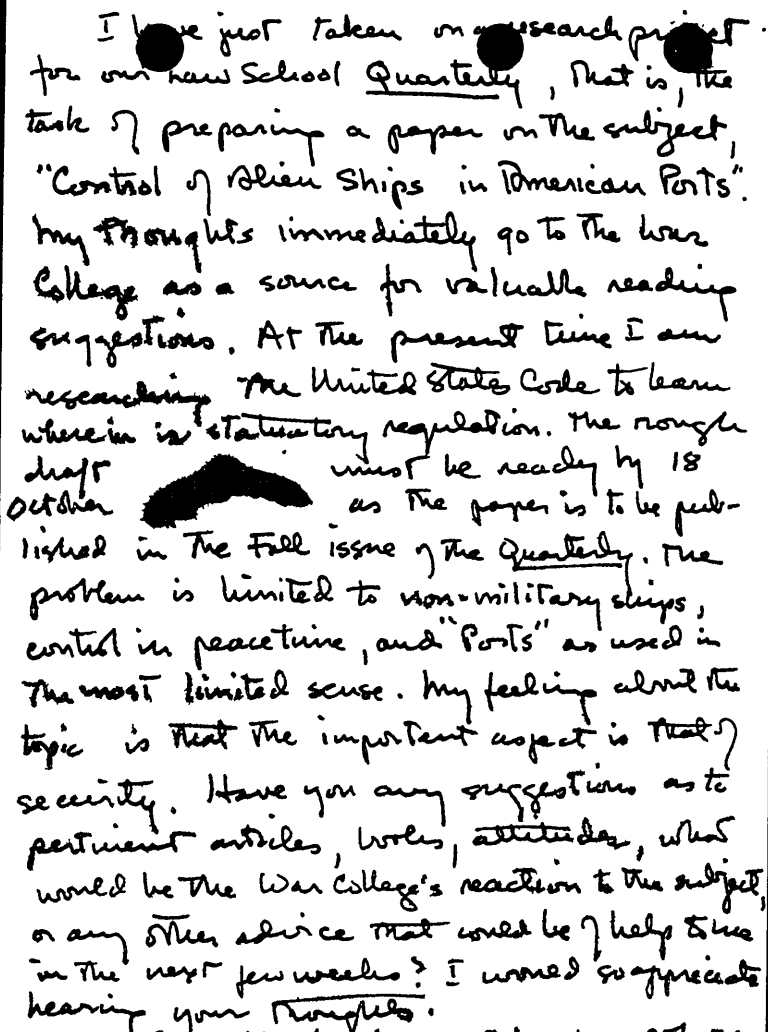 I have just taken on a research project
for our Law School Quarterly, that is, the
task of preparing a paper on the subject,
"Control of Alien Ships in American Ports".
My thoughts immediately go to the War
College as a source for valuable reading
suggestions. At the present time I am
researching the United States Code to learn
wherein is statuatory regulation. The rough
draft must be ready by 18
October as the paper is to be pub-
lished in the Fall issue of the Quarterly. The
problem is limited to non-military ships,
control in peacetime, and "Ports" as used in
the most limited sense. My feeling about the
topic is that the important aspect is that of
security. Have you any suggestions as to
pertinent articles, books, attitudes, what
would be the War College's reaction to the subject,
or any other advice that could be of help to me
in the next few weeks? I would so appreciate
hearing your thoughts.